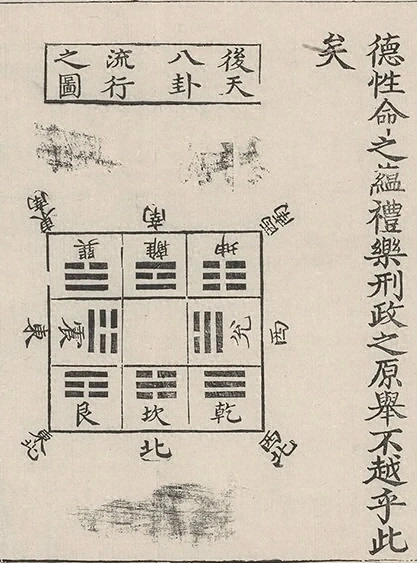 德性命之蘊禮樂刑政之原舉不越乎此
矣
後天
八卦
流行
之圖
西南
南
東南
坤
離
巽
西
兌
震
東
乾
坎
艮
西北
北
東北